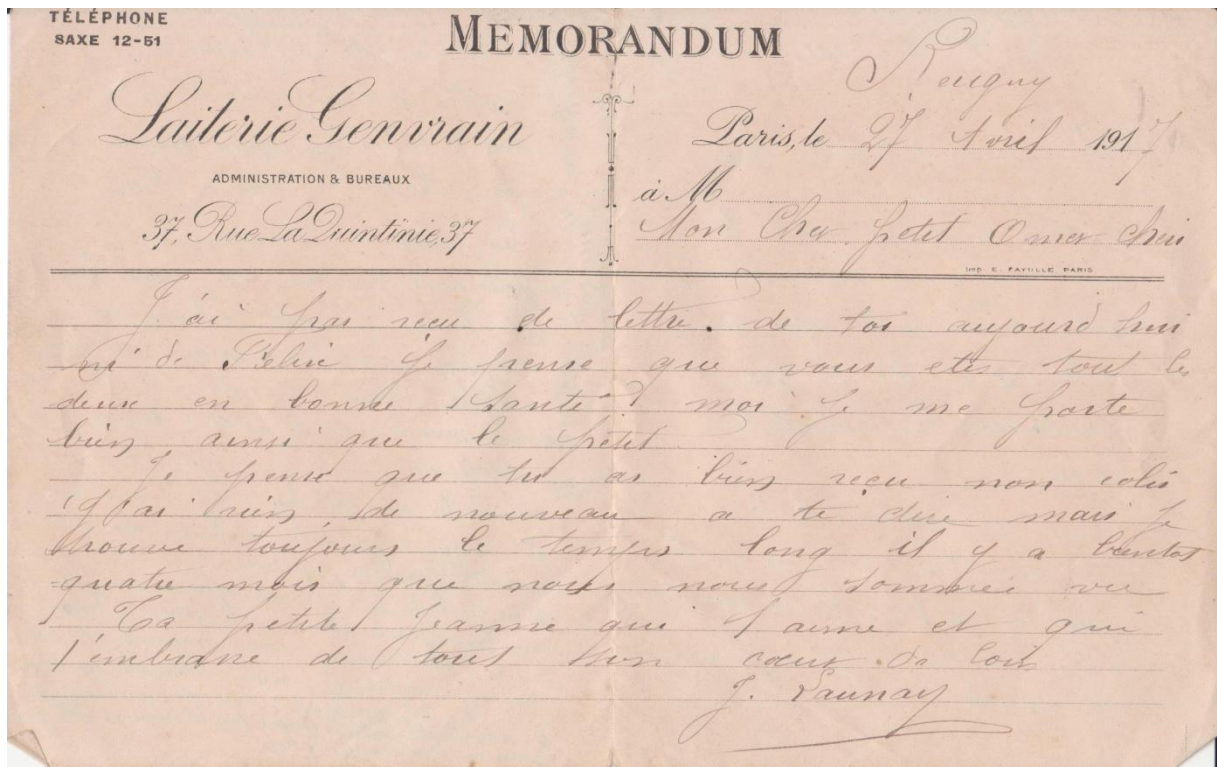 TÉLÉPHONE
SAXE 12-51
MEMORANDUM
Laiterie Genvrain
ADMINISTRATION & BUREAUX
37, Rue La Quintinie, 37
Reugny
Paris, le 27 Avril 1917
à M
Mon Cher petit Omer Cheri
Imp. E. FAYOLLE PARIS
J'ai pas reçu de lettre. de toi aujourd hui
ni de Félix je pense que vous etes tout les
deux en bonne santé? moi je me porte
bien ainsi que le petit
Je pense que tu as bien reçu mon colis
j'ai rien de nouveau a te dire mais je
trouve toujours le temps long il y a bientot
quatre mois que nous nous sommes vu
Ta petite Jeanne qui t'aime et qui
t'embrasse de tout son cœur de loin
J. Launay